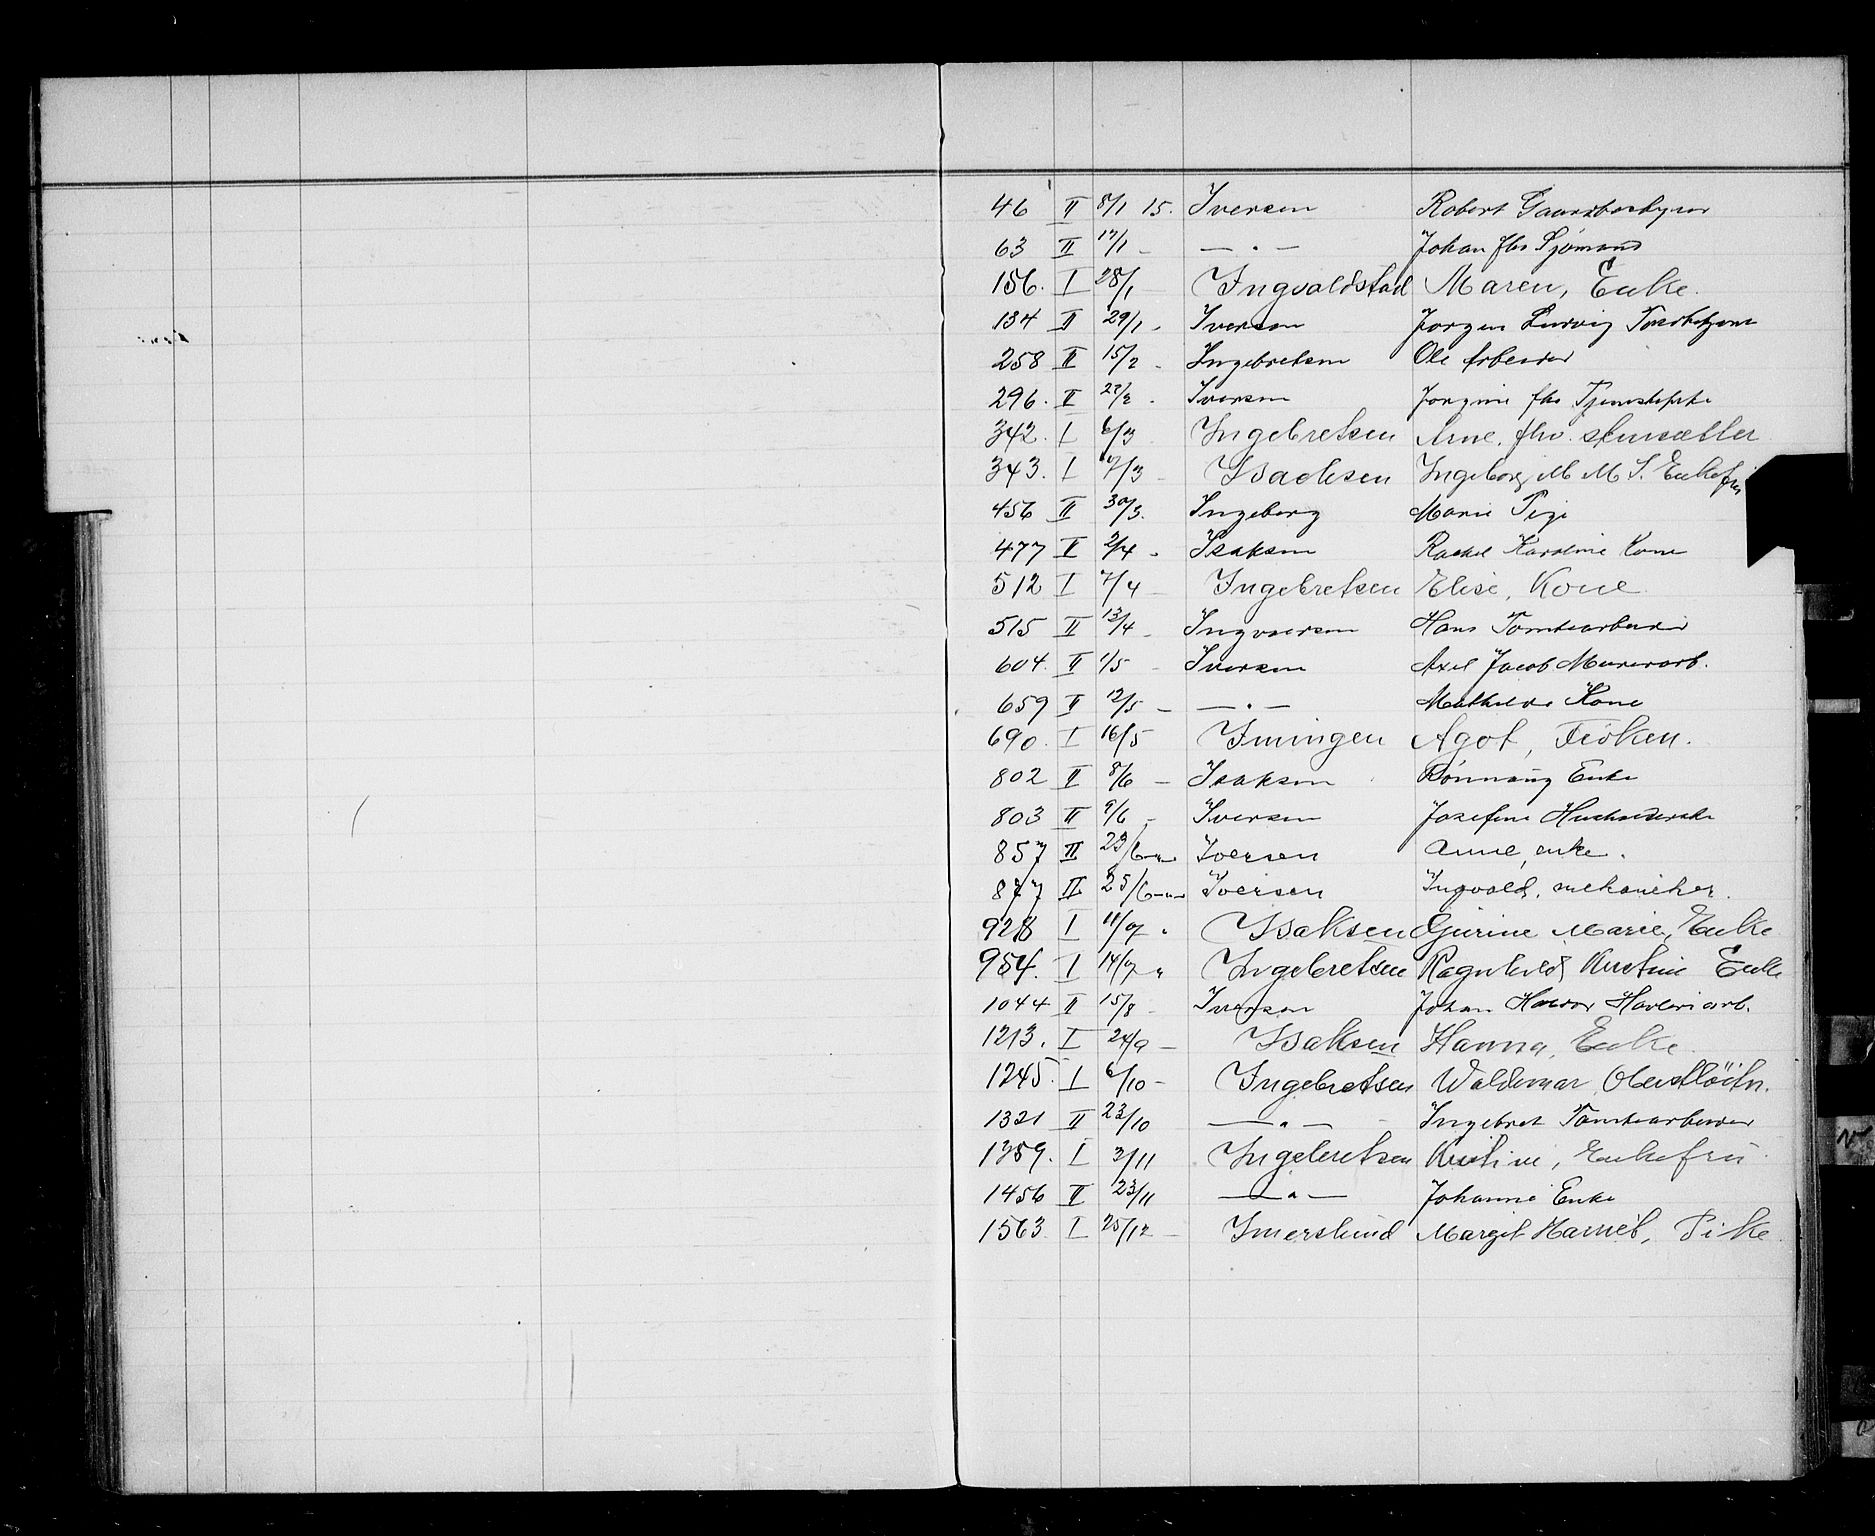 46 II 8/1 15. Iversen Robert Gaardbestyrer
63 II 17/1 - — " — Johan fhv Sjømand
156. I 28/1 - Ingvaldstad Maren, Enke.
134 II 29/1 - Iversen Jørgen Ludvig
258 II 15/2 - Ingebretsen Ole Arbeider
296. II 27/2 - Iversen Jørgine fhv
342. I 6/3 Ingebretsen Arne. fhv.
343. I 7/3 - Isachsen Ingeborg M M S. Enkefru
456 II 30/3. Ingeborg Marie Pige
477 II 2/4 - Isaksen Rachel Karoline Kone
512 I 7/4 - Ingebretsen Elise, Kone
515 II 13/4 - Ingvaersen Hans Tomtearbeider
604. II 1/5 - Iversen Axel Jacob Murerarb.
659 II 12/5 - — " — Mathilde Kone
690. I 16/5 Imingen Agot, Frøken.
802 II 8/6 - Isaksen Rønnaug Enke
803 II 9/6 - Iversen Josefine
857 II 23/6 -"- Iversen Anne, enke.
877 II 25/6 -"- Iversen Ingvald, mekaniker.
928 I 11/7 " Isaksen Gurine Marie, Enke
954. I 14/7 " Ingebretsen Ragnhild Kristine Enke
1044 II 15/8 - Iversen Johan Havneriarb.
1213. I 24/9 - Isaksen Hanna, Enke
1245. I 6/10 - Ingebretsen Waldemar, Oberstløitn.
1321 II 23/10 — " — Ingebret Tomtearbeider
1359. I 3/11 Ingebretsen Kristine, Enkefru
1456 II 23/11 — " — Johanne Enke
1563. I 25/12 - Imerslund Margit Harriet, Pike